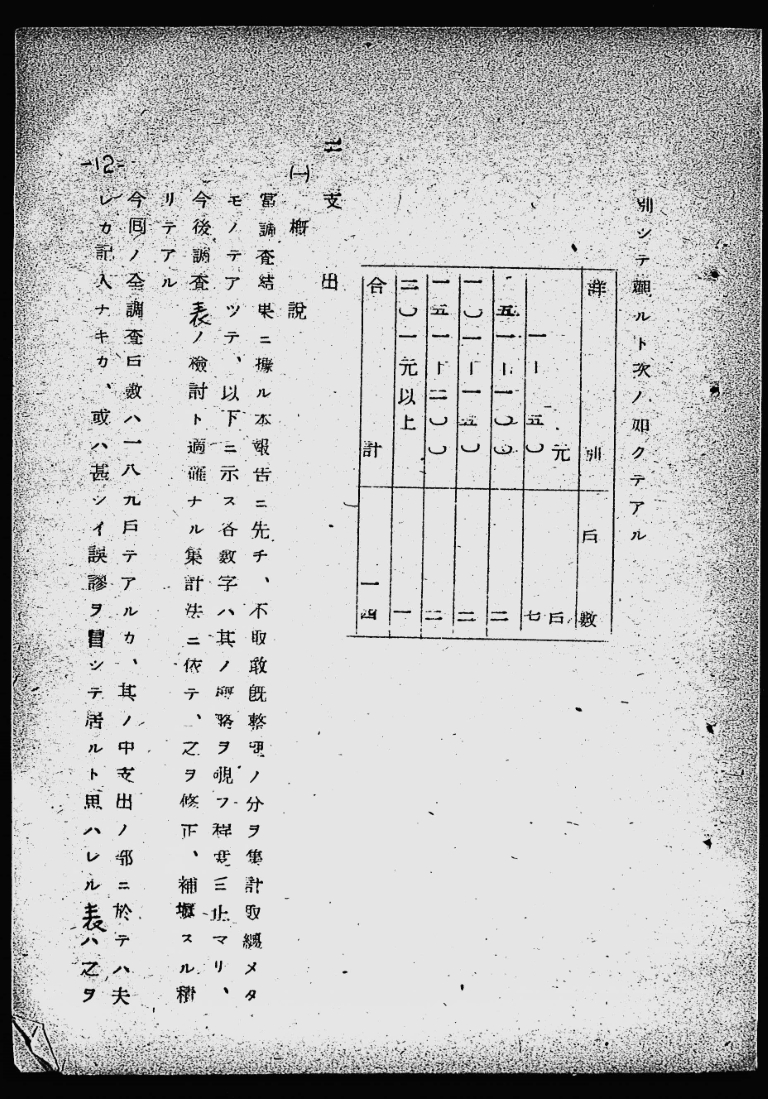 別シテ觀ルト次ノ如クテアル
詳別 戶數
一—五〇元 七戶
五一—一〇〇 二
一〇一—一五〇 二
一五一—二〇〇 二
二〇一元以上 一
合計 一四
二 支出
(一) 槪說
當調査結果ニ據ル本報告ニ先チ、不取敢旣整理ノ分ヲ集計取纏メタ
モノテアツテ、以下ニ示ス各數字ハ其ノ槪略ヲ覗フ程度ニ止マリ、
今後調査表ノ檢討ト適確ナル集計法ニ依テ、之ヲ修正、補塡スル積
リテアル
今囘ノ全調査戶數ハ一八九戶テアルカ、其ノ中支出ノ部ニ於テハ夫
レカ記入ナキカ、或ハ甚シイ誤謬ヲ冒シテ居ルト思ハレル表ハ之ヲ
-12-